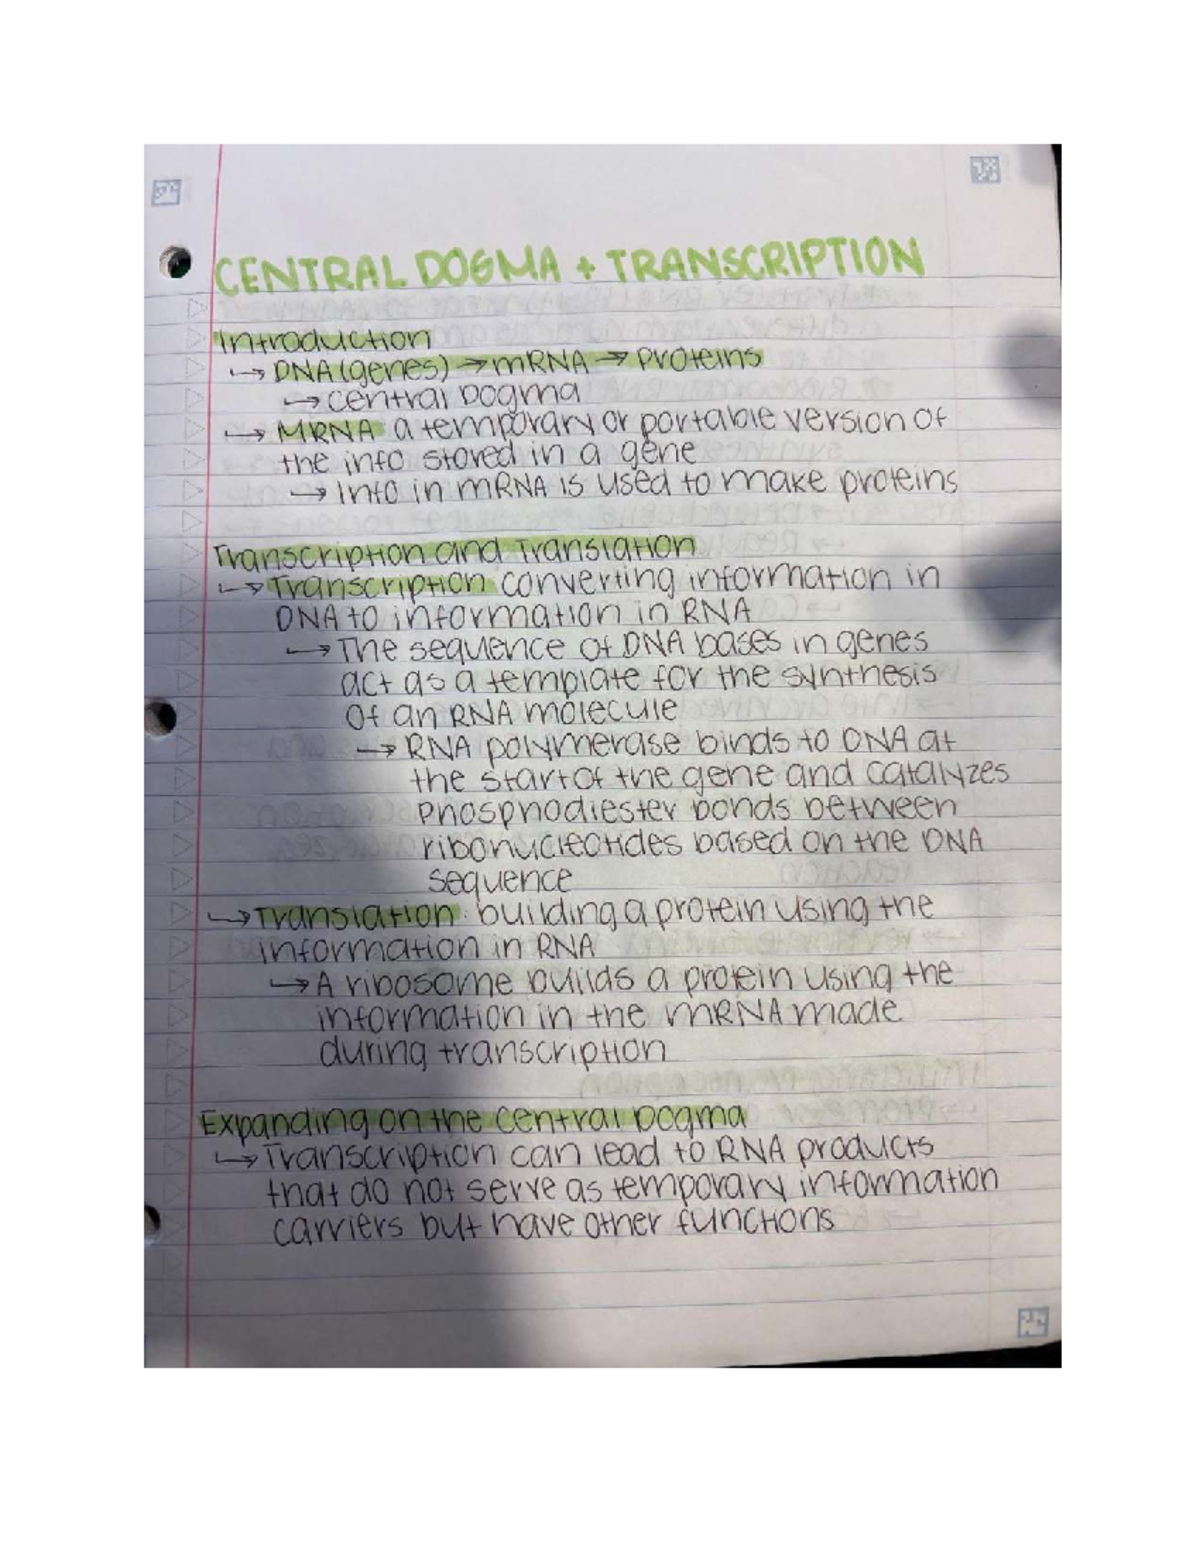 CENTRAL DOGMA + TRANSCRIPTION
Introduction
↳ DNA (genes) → mRNA → proteins
↳ central Dogma
↳ MRNA a temporary or portable version of
the info stored in a gene
↳ Info in mRNA is used to make proteins
Transcription and Translation
↳ Transcription converting information in
DNA to information in RNA
↳ The sequence of DNA bases in genes
act as a template for the synthesis
of an RNA molecule
↳ RNA polymerase binds to DNA at
the start of the gene and catalyzes
phosphodiester bonds between
ribonucleotides based on the DNA
sequence
↳ Translation: building a protein using the
information in RNA
↳ A ribosome builds a protein using the
information in the mRNA made
during transcription
Expanding on the central Dogma
↳ Transcription can lead to RNA products
that do not serve as temporary information
carriers but have other functions